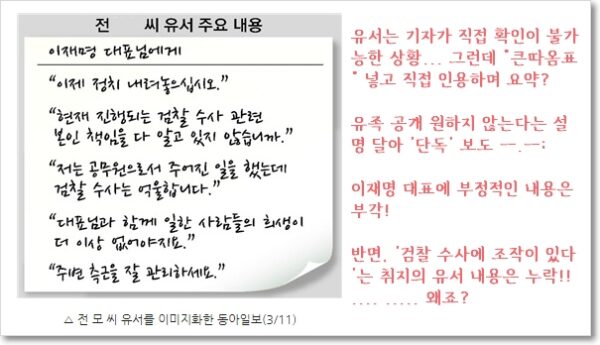 전 씨 유서 주요 내용
이재명 대표님에게
“이제 정치 내려놓으십시오.”
“현재 진행되는 검찰 수사 관련
본인 책임을 다 알고 있지 않습니까.”
“저는 공무원으로서 주어진 일을 했는데
검찰 수사는 억울합니다.”
“대표님과 함께 일한 사람들의 희생이
더 이상 없어야지요.”
“주변 측근을 잘 관리하세요.”
△ 전 모 씨 유서를 이미지화한 동아일보(3/11)
유서는 기자가 직접 확인이 불가
능한 상황... 그런데 "큰따옴표
" 넣고 직접 인용하며 요약?
유족 공개 원하지 않는다는 설
명 달아 '단독' 보도 ㅡ.ㅡ;
이재명 대표에 부정적인 내용은
부각!
반면, '검찰 수사에 조작이 있다
'는 취지의 유서 내용은 누락!!
.... ..... 왜죠?